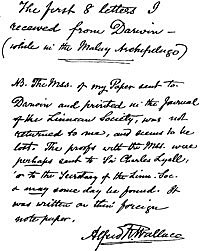 The first 8 letters I
received from Darwin —
(while in the Malay Archipelago)
NB. The Mss. of my Paper sent to
Darwin and printed in the Journal
of the Linnean Society, was not
returned to me, and seems to be
lost. The proofs with the Mss. were
perhaps sent to Sir Charles Lyell,
or to the Secretary of the Linn. Soc.
& may some day be found. It
was written on thin foreign
note paper.
Alfred R. Wallace